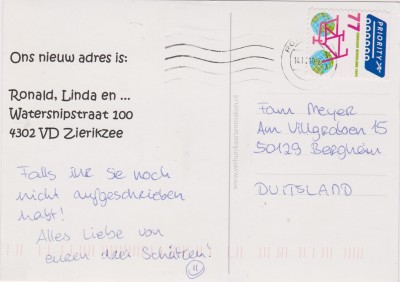 Ons nieuw adres is:
Ronald, Linda en ...
Watersnipstraat 100
4302 VD Zierikzee
Falls ihr sie noch
nicht aufgeschrieben
habt!
Alles Liebe von
euren drei Schätzen!
77
PRIORITY
Fam Meyer
Am Villgraben 15
50129 Bergheim
DUITSLAND